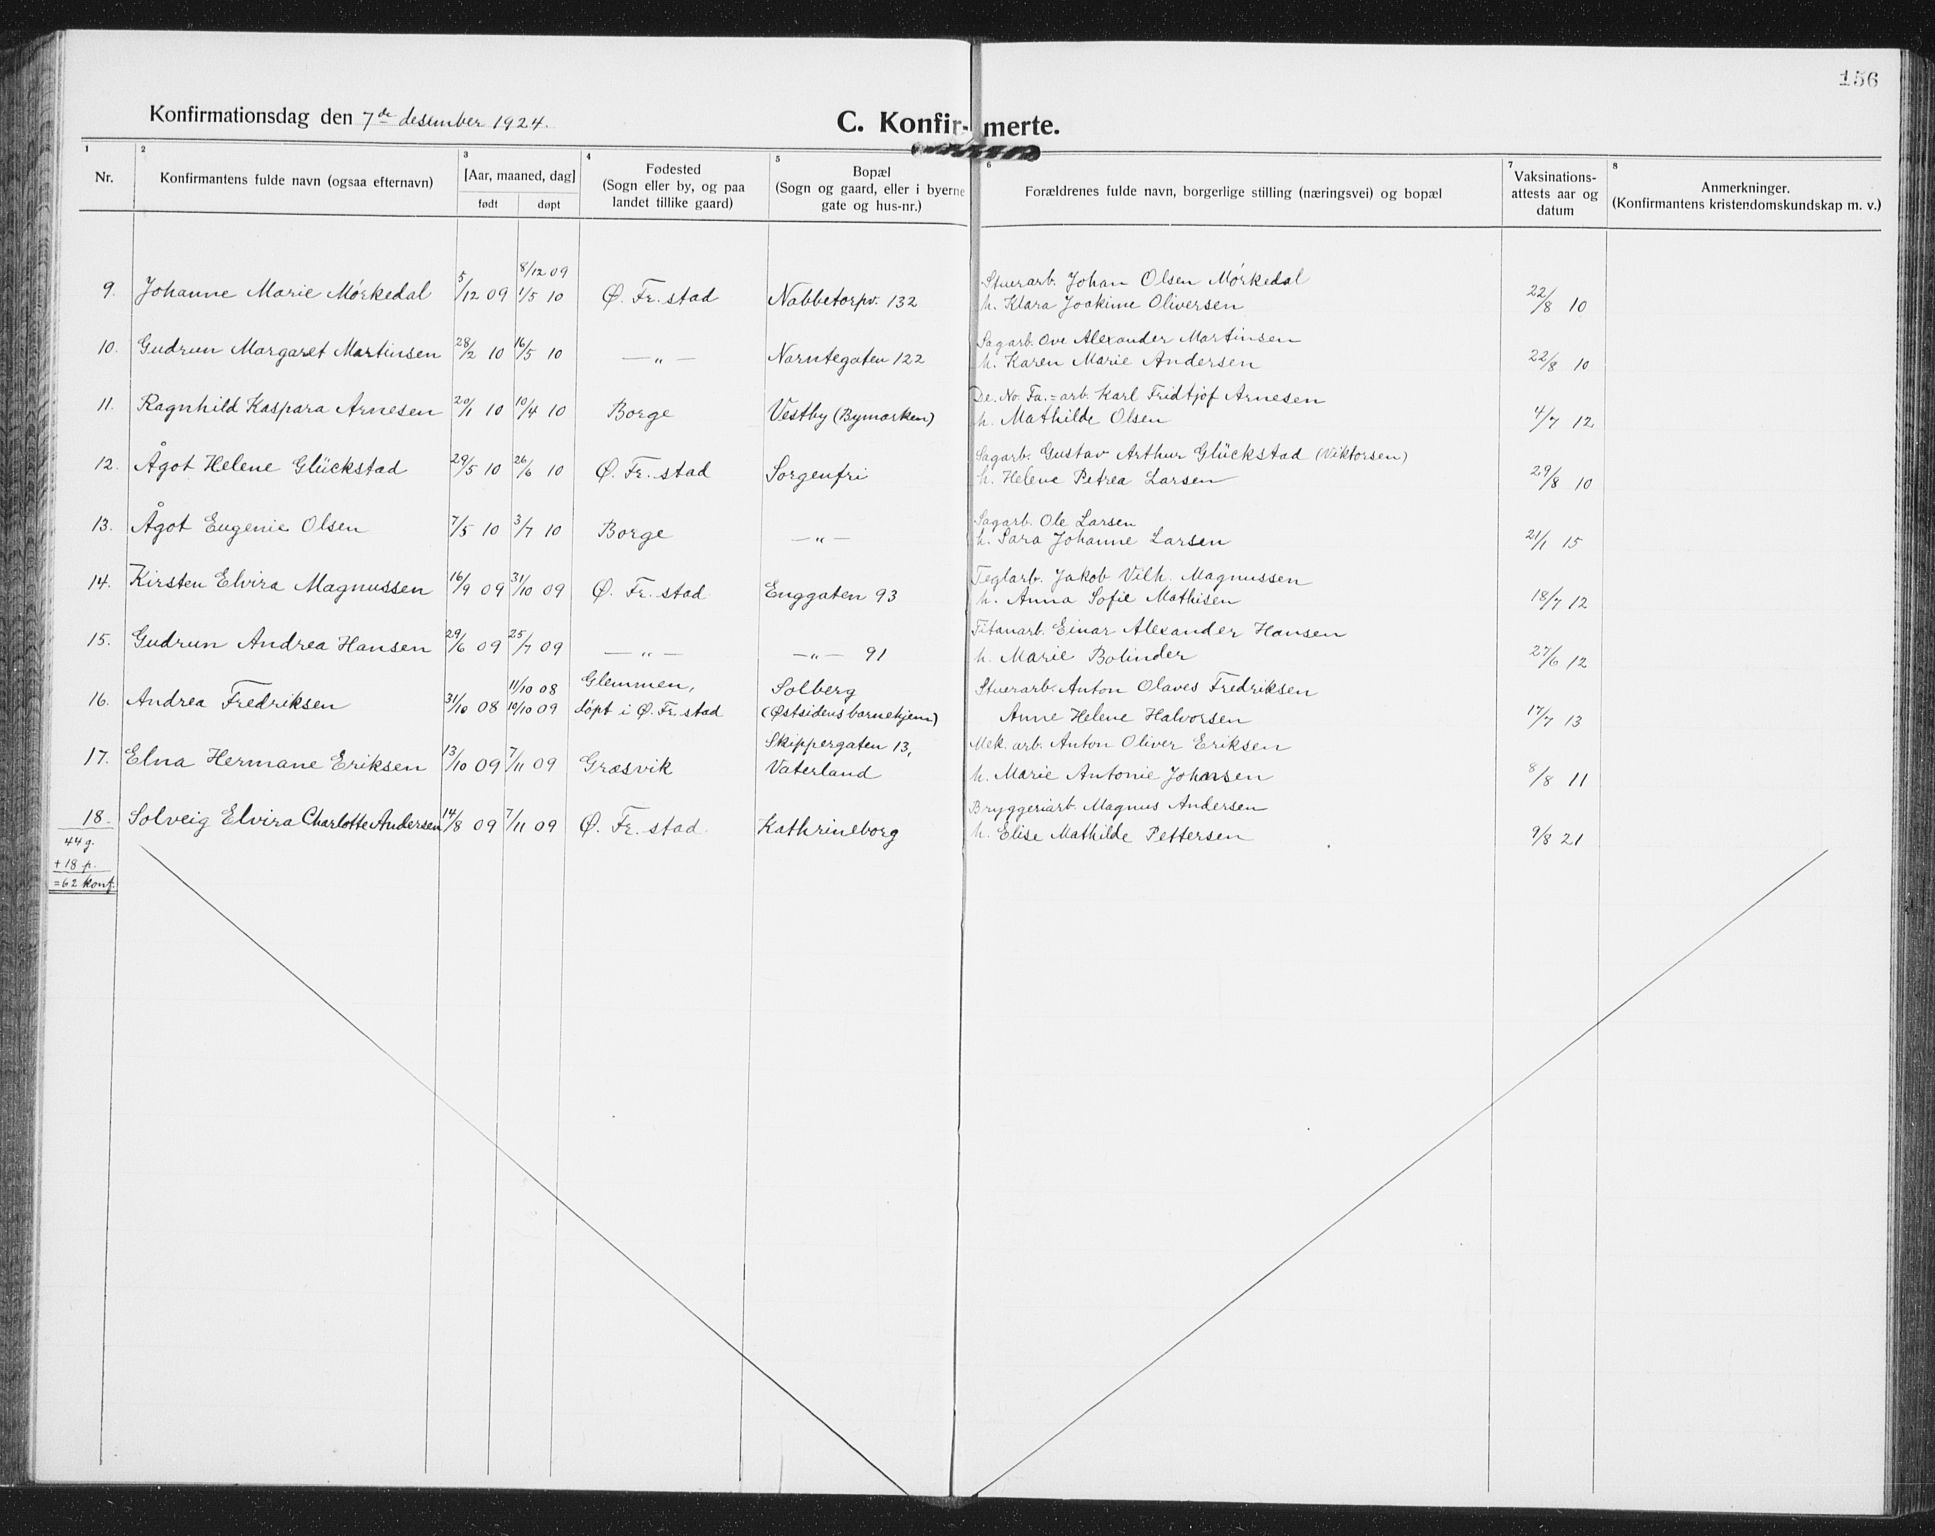 156
Konfirmationsdag den 7de desember 1924.
C. Konfir- merte.
1 2 3 4 5 6 7 8
Nr.
Konfirmantens fulde navn (ogsaa efternavn)
[Aar, maaned, dag]
født døpt
Fødested
(Sogn eller by, og paa
landet tillike gaard)
Bopæl
(Sogn og gaard, eller i byerne
gate og hus-nr.)
Forældrenes fulde navn, borgerlige stilling (næringsvei) og bopæl
Vaksinations-
attests aar og
datum
Anmerkninger.
(Konfirmantens kristendomskundskap m. v.)
8/12 09 Stuerarb. Johan Olsen Mörkedal
9. Johanne Marie Mörkedal 5/12 09 1/5 10 Ø. Fr. stad Nabbetorpv. 132 h. Klara Joakime Oliversen 22/8 10
Sagarb. Ove Alexander Martinsen
10. Gudrun Margaret Martinsen 28/2 10 16/5 10 — „ — Narntegaten 122 h. Karen Marie Andersen 22/8 10
De. No. Fa.=arb. Karl Fridtjof Arnesen
11. Ragnhild Kaspara Arnesen 20/1 10 10/4 10 Borge Vestby (Bymarken) h. Mathilde Olsen 4/7 12
Sagarb. Gustav Arthur Glückstad (Viktorsen)
12. Ågot Helene Glückstad 29/5 10 26/6 10 Ø. Fr. stad Sorgenfri h. Helene Petrea Larsen 29/8 10
Sagarb. Ole Larsen
13. Ågot Eugenie Olsen 7/5 10 3/7 10 Borge — „ — h. Sara Johanne Larsen 21/1 15
Teglarb. Jakob Vilh. Magnussen
14. Kirsten Elvira Magnussen 16/9 09 31/10 09 Ø. Fr. stad Enggaten 93 h. Anna Sofie Mathisen 18/7 12
Titanarb. Einar Alexander Hansen
15. Gudrun Andrea Hansen 29/6 09 25/7 09 — „ — — „ — 91 h. Marie Bolinder 27/6 12
11/10 08 Glemmen, Solberg Stuerarb. Anton Olaves Fredriksen
16. Andrea Fredriksen 31/10 08 10/10 09 döpt i Ø. Fr. stad (Østsidens barnehjem) Anne Helene Halvorsen 17/7 13
Skippergaten 13, Mek. arb. Anton Oliver Eriksen
17. Elna Hermane Eriksen 13/10 09 7/11 09 Græsvik Vaterland h. Marie Antonie Johansen 8/8 11
Bryggeriarb. Magnus Andersen
18. Solveig Elvira Charlotte Andersen 14/8 09 7/11 09 Ø. Fr. stad. Kathrineborg h. Elise Mathilde Pettersen 9/8 21
44 g.
+ 18 p.
= 62 konf.